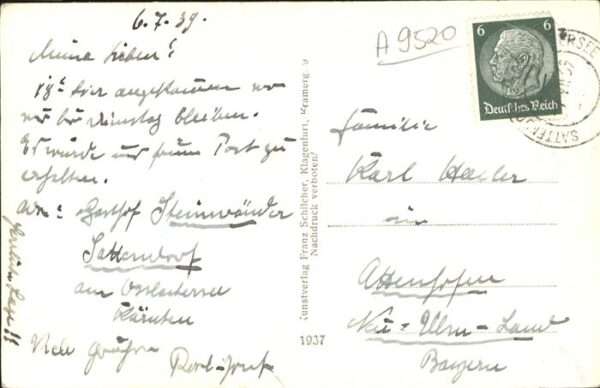 6.7.39.
Meine Lieben!
18h hier angekommen wo
wir bis Dienstag bleiben.
Es würde uns freuen Post zu
erhalten.
Adr: Gasthof Steinwänder
Sattendorf
am Ossiachersee
Kärnten
Viele Grüße
A 9520
6 6
Deutsches Reich
Kunstverlag Franz Schilcher, Klagenfurt,
Nachdruck verboten!
1937
Familie
Karl
in
Attenhofen
Neu-Ulm-Land
Bayern